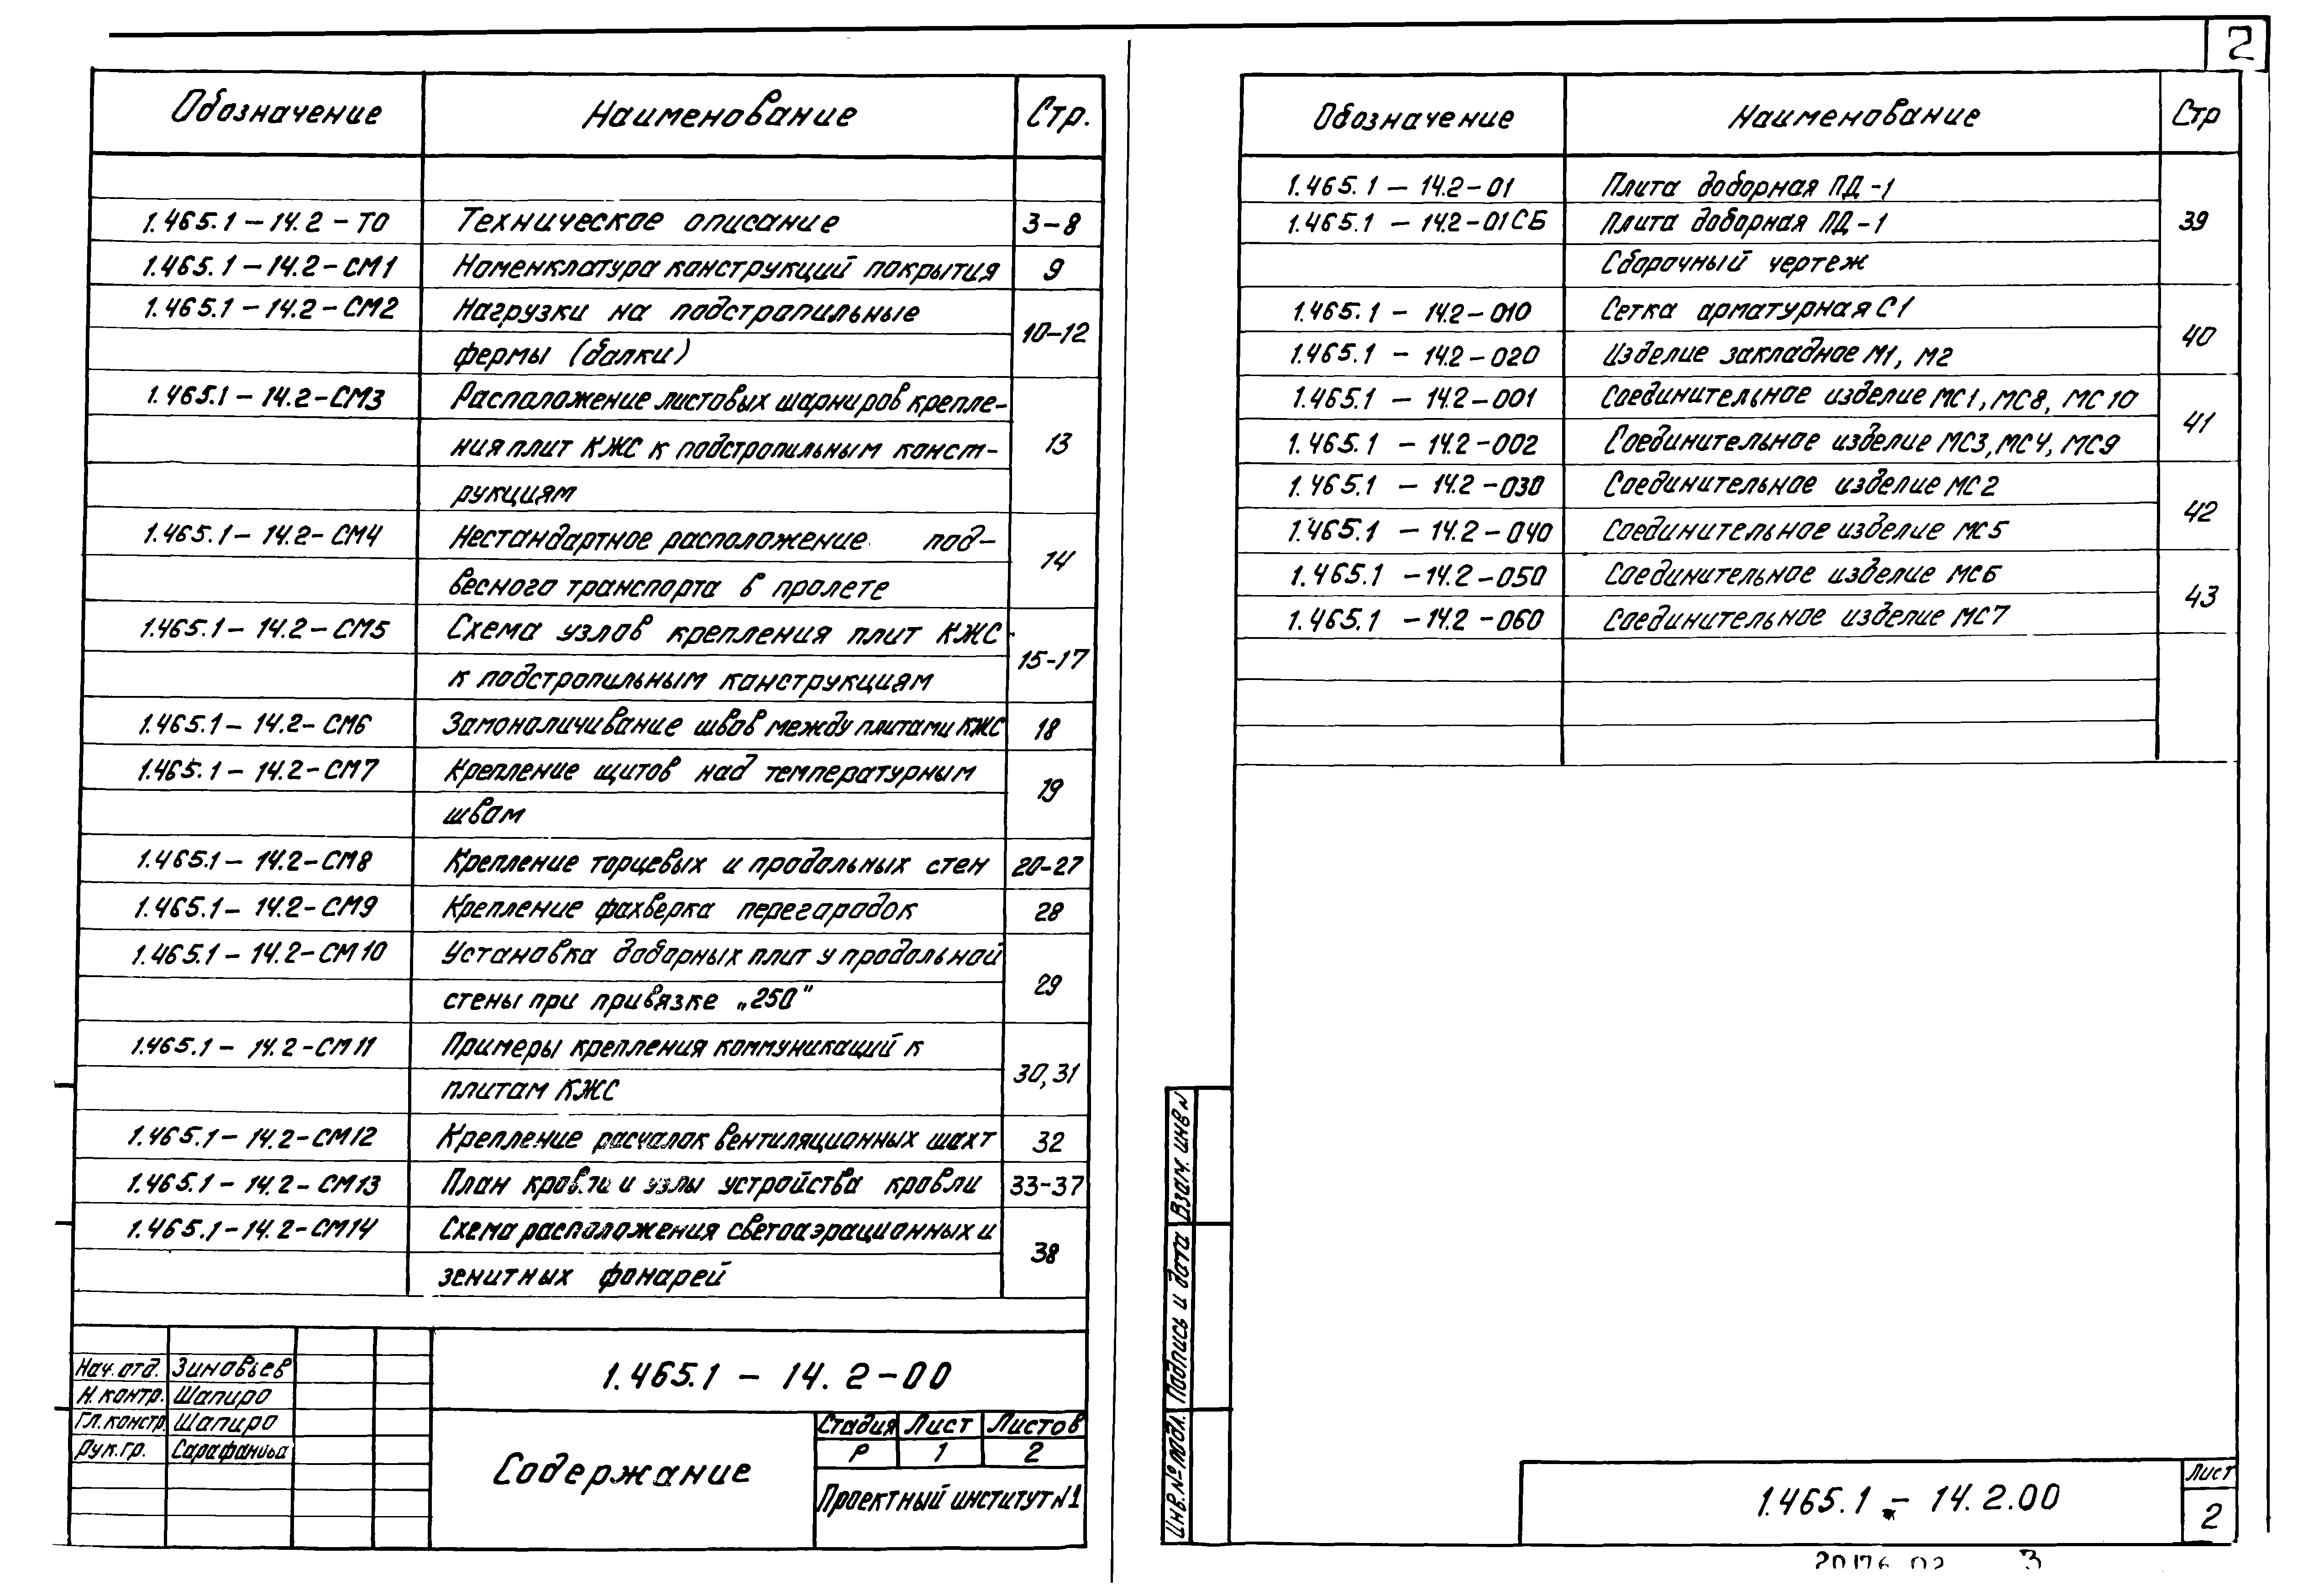 2
Обозначение Наименование Стр.
1.465.1 – 14.2 – ТО Техническое описание 3–8
1.465.1 – 14.2 – СМ1 Номенклатура конструкций покрытия 9
1.465.1 – 14.2 – СМ2 Нагрузки на подстропильные
фермы (балки) 10–12
1.465.1 – 14.2 – СМ3 Расположение листовых шарниров крепле-
ния плит КЖС к подстропильным конст- 13
рукциям
1.465.1 – 14.2 – СМ4 Нестандартное расположение под-
весного транспорта в пролете 14
1.465.1 – 14.2 – СМ5 Схема узлов крепления плит КЖС
к подстропильным конструкциям 15-17
1.465.1 – 14.2 – СМ6 Замоноличивание швов между плитами КЖС 18
1.465.1 – 14.2 – СМ7 Крепление щитов над температурным
швом 19
1.465.1 – 14.2 – СМ8 Крепление торцевых и продольных стен 20-27
1.465.1 – 14.2 – СМ9 Крепление фахверка перегородок 28
1.465.1 – 14.2 – СМ10 Установка доборных плит у продольной
стены при привязке „250" 29
1.465.1 – 14.2 – СМ11 Примеры крепления коммуникаций к
плитам КЖС 30,31
1.465.1 – 14.2 – СМ12 Крепление расчалок вентиляционных шахт 32
1.465.1 – 14.2 – СМ13 План кровли и узлы устройства кровли 33-37
1.465.1 – 14.2 – СМ14 Схема расположения светоаэрационных и
зенитных фонарей 38
Нач. отд. Зиновьев
Н. контр. Шапиро
Гл. констр. Шапиро
Рук. гр. Сарафанова
1.465.1 – 14. 2 – 00
Содержание
Стадия Лист Листов
Р 1 2
Проектный институт N1
Обозначение Наименование Стр
1.465.1 – 14.2 – 01 Плита доборная ПД-1
1.465.1 – 14.2 – 01СБ Плита доборная ПД-1 39
Сборочный чертеж
1.465.1 – 14.2 – 010 Сетка арматурная С1
1.465.1 – 14.2 – 020 Изделие закладное М1, М2 40
1.465.1 – 14.2 – 001 Соединительное изделие МС1, МС8, МС10
1.465.1 – 14.2 – 002 Соединительное изделие МС3, МС4, МС9 41
1.465.1 – 14.2 – 030 Соединительное изделие МС2
1.465.1 – 14.2 – 040 Соединительное изделие МС5 42
1.465.1 – 14.2 – 050 Соединительное изделие МС6
1.465.1 – 14.2 – 060 Соединительное изделие МС7 43
Инв. № подл. Подпись и дата Взам. инв N
1.465.1 – 14.2.00
Лист
2
20176 02 3